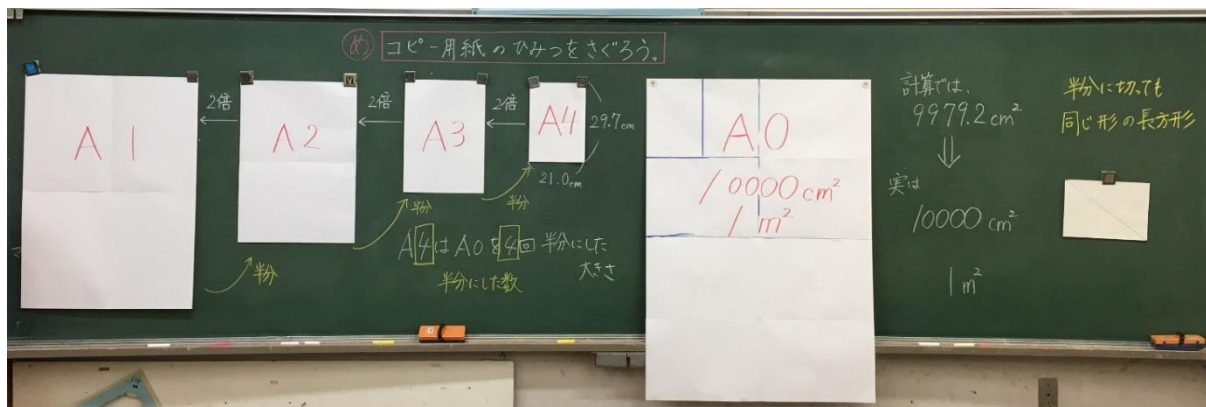 め コピー用紙のひみつをさぐろう。
A1
2倍
A2
2倍
A3
2倍
A4
29.7cm
21.0cm
半分
半分
半分
A4はA0を4回半分にした
大きさ
半分にした数
A0
10000cm²
1m²
計算では、
9979.2cm²
⇓
実は
10000cm²
1m²
半分に切っても
同じ形の長方形